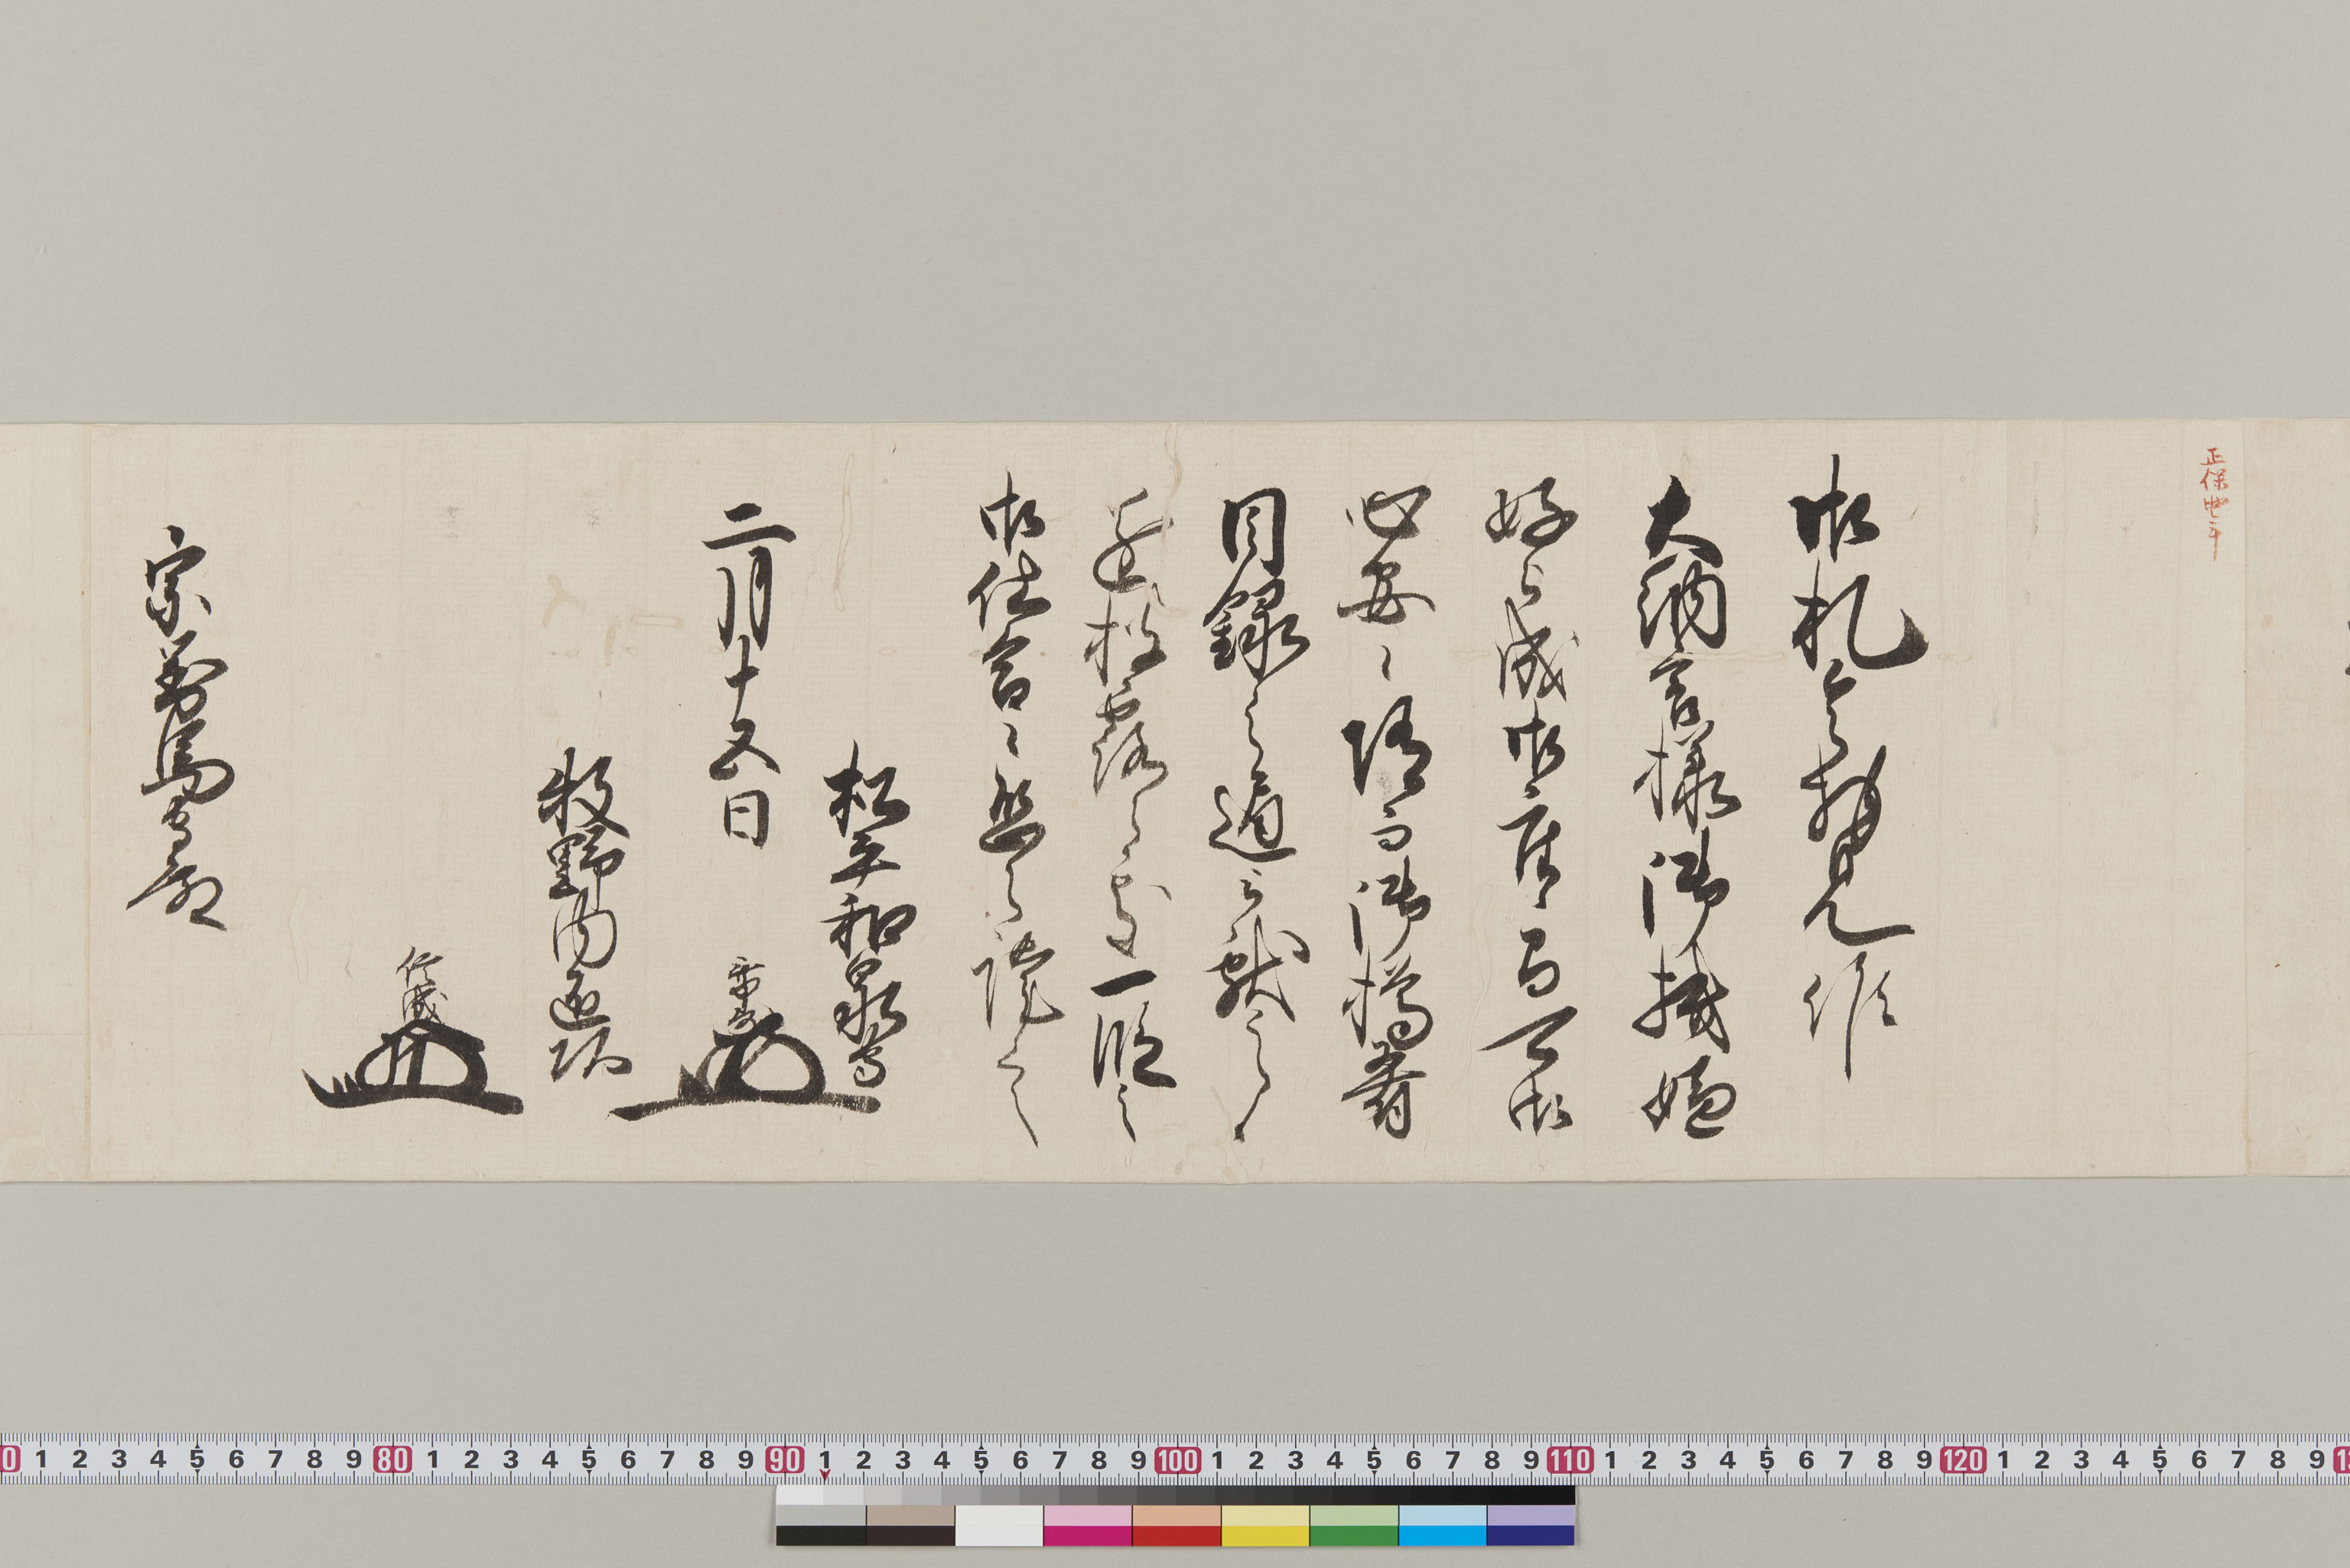 正保四年
御札令拝見候
大納言様御機嫌
好被成御座候間可御
心安候随而御樽肴
目録之通被献之候
遂披露候処一段之
御仕合候恐々謹言
松平和泉守
二月十五日 乗寿
牧野内匠頭
信成
宗對馬守殿
0 1 2 3 4 5 6 7 8 9 80 1 2 3 4 5 6 7 8 9 90 1 2 3 4 5 6 7 8 9 100 1 2 3 4 5 6 7 8 9 110 1 2 3 4 5 6 7 8 9 120 1 2 3 4 5 6 7 8 9